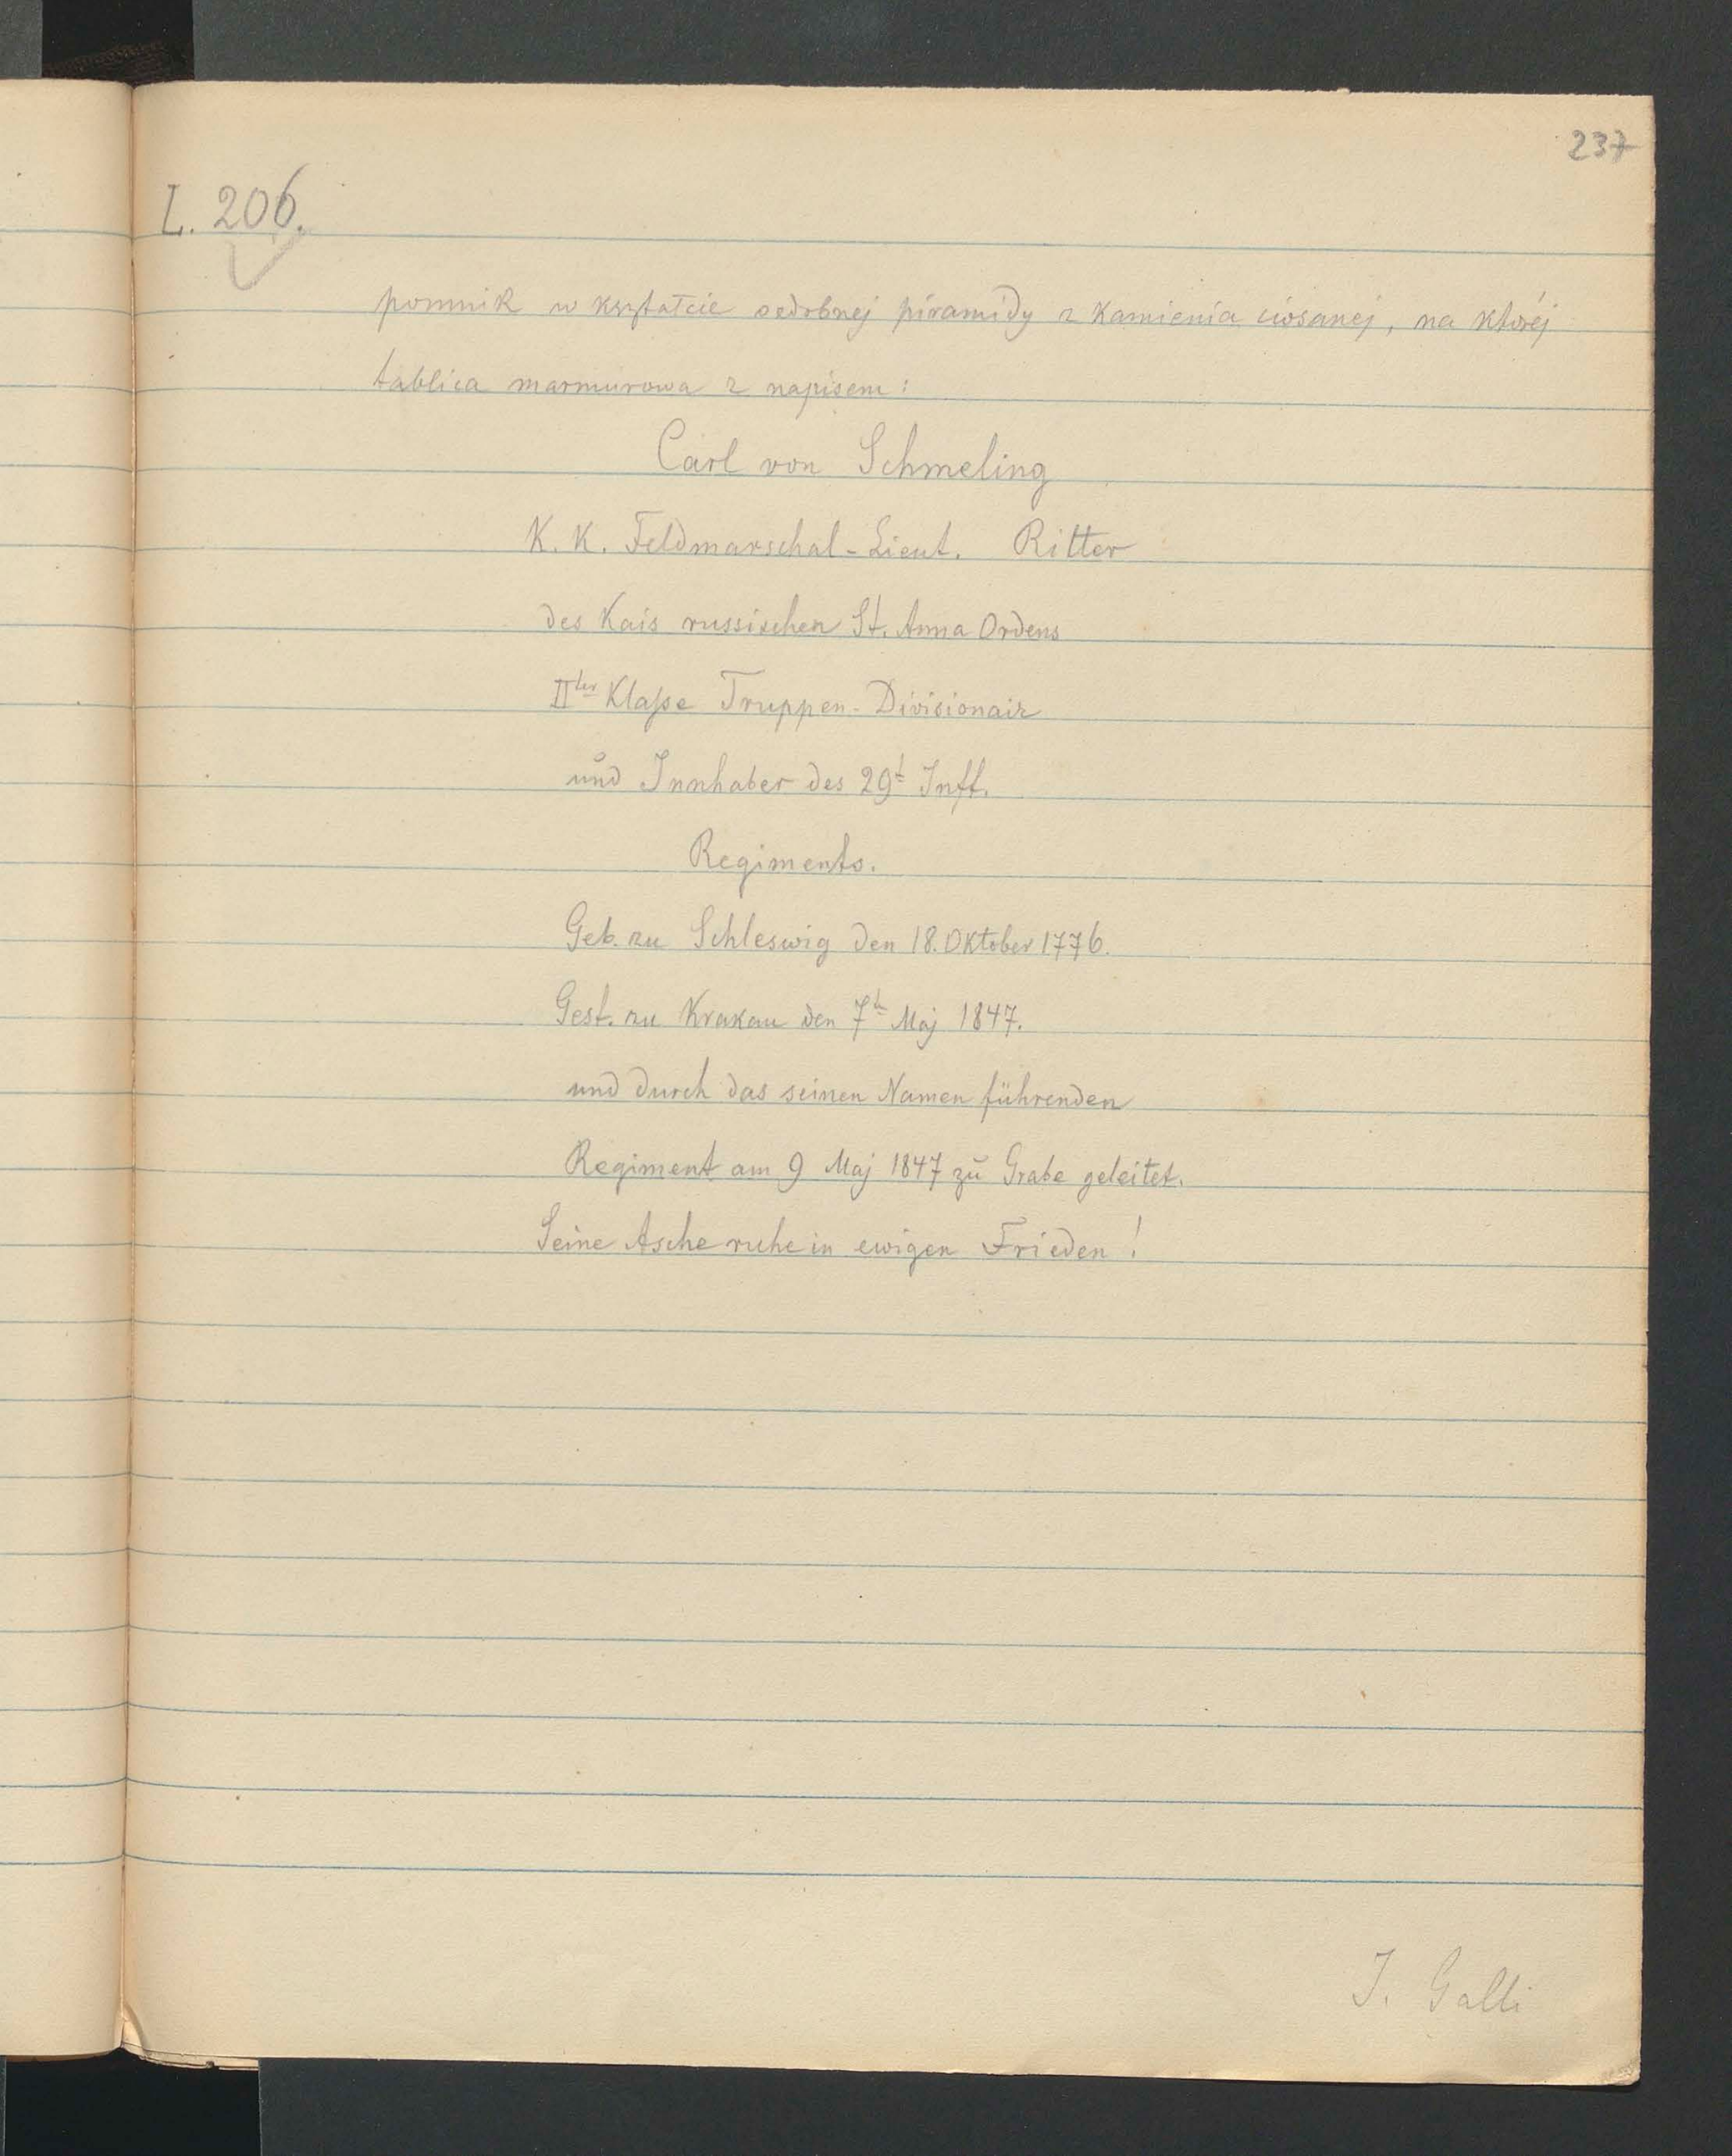 237
L. 206.
pomnik w kształcie ozdobnej piramidy z kamienia ciosanej, na której
tablica marmurowa z napisem:
Carl von Schmeling
K. K. Feldmarschal-Lieut. Ritter
des Kais russischen St. Anna Ordens
IIter Klaſse Truppen-Divisionair
und Innhaber des 29t Inft.
Regiments.
Geb. zu Schleswig den 18. Oktober 1776.
Gest. zu Krakau den 7t Maj 1847.
und durch das seinen Namen führenden
Regiment am 9 Maj 1847 zu Grabe geleitet.
Seine Asche ruhe in ewigen Frieden!
J. Galli